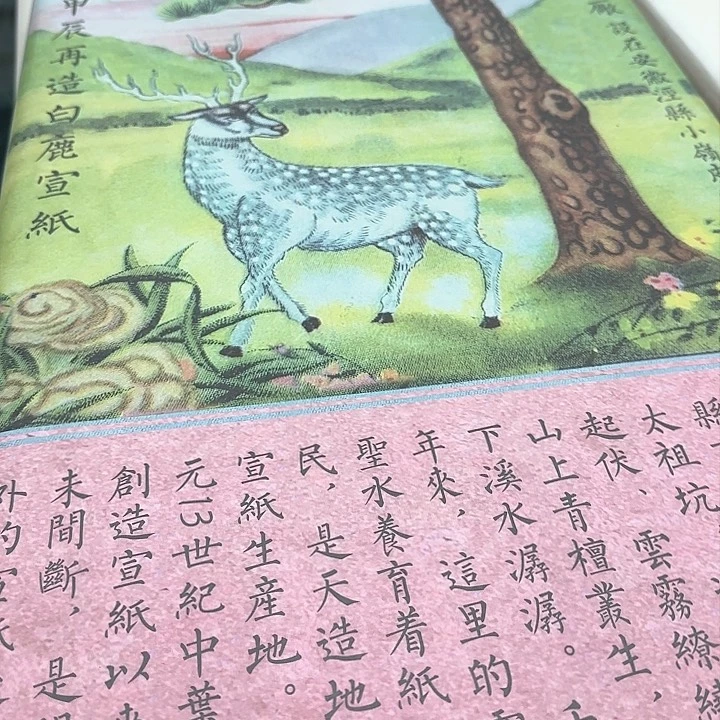 廠設在安徽涇縣小嶺
甲辰再造白鹿宣紙
縣
太祖坑
起伏、雲霧繚繞
山上青檀叢生，
下溪水潺潺。
年來，這里的
聖水養育着紙
民，是天造地
宣紙生産地。
元13世紀中葉
創造宣紙以來
未間斷，是
外的宣紙